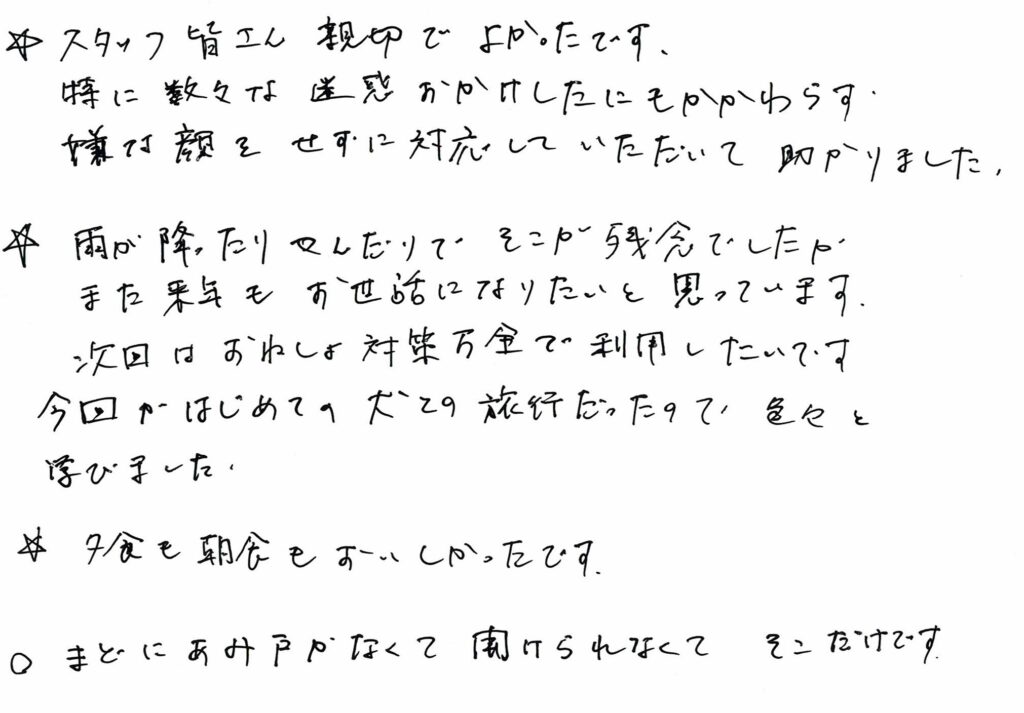 ☆ スタッフ皆さん 親切で よかったです。
特に数々な迷惑おかけしたにもかかわらず
嫌な顔をせずに対応していただいて 助かりました。
☆ 雨が降ったりやんだりで そこが残念でしたが
また来年も お世話になりたいと思っています。
次回はおねしょ対策万全で利用したいです
今回がはじめての犬との旅行だったので 色々と
学びました。
☆ 夕食も朝食もおーいしかったです。
○ まどにあみ戸がなくて開けられなくて そこだけです